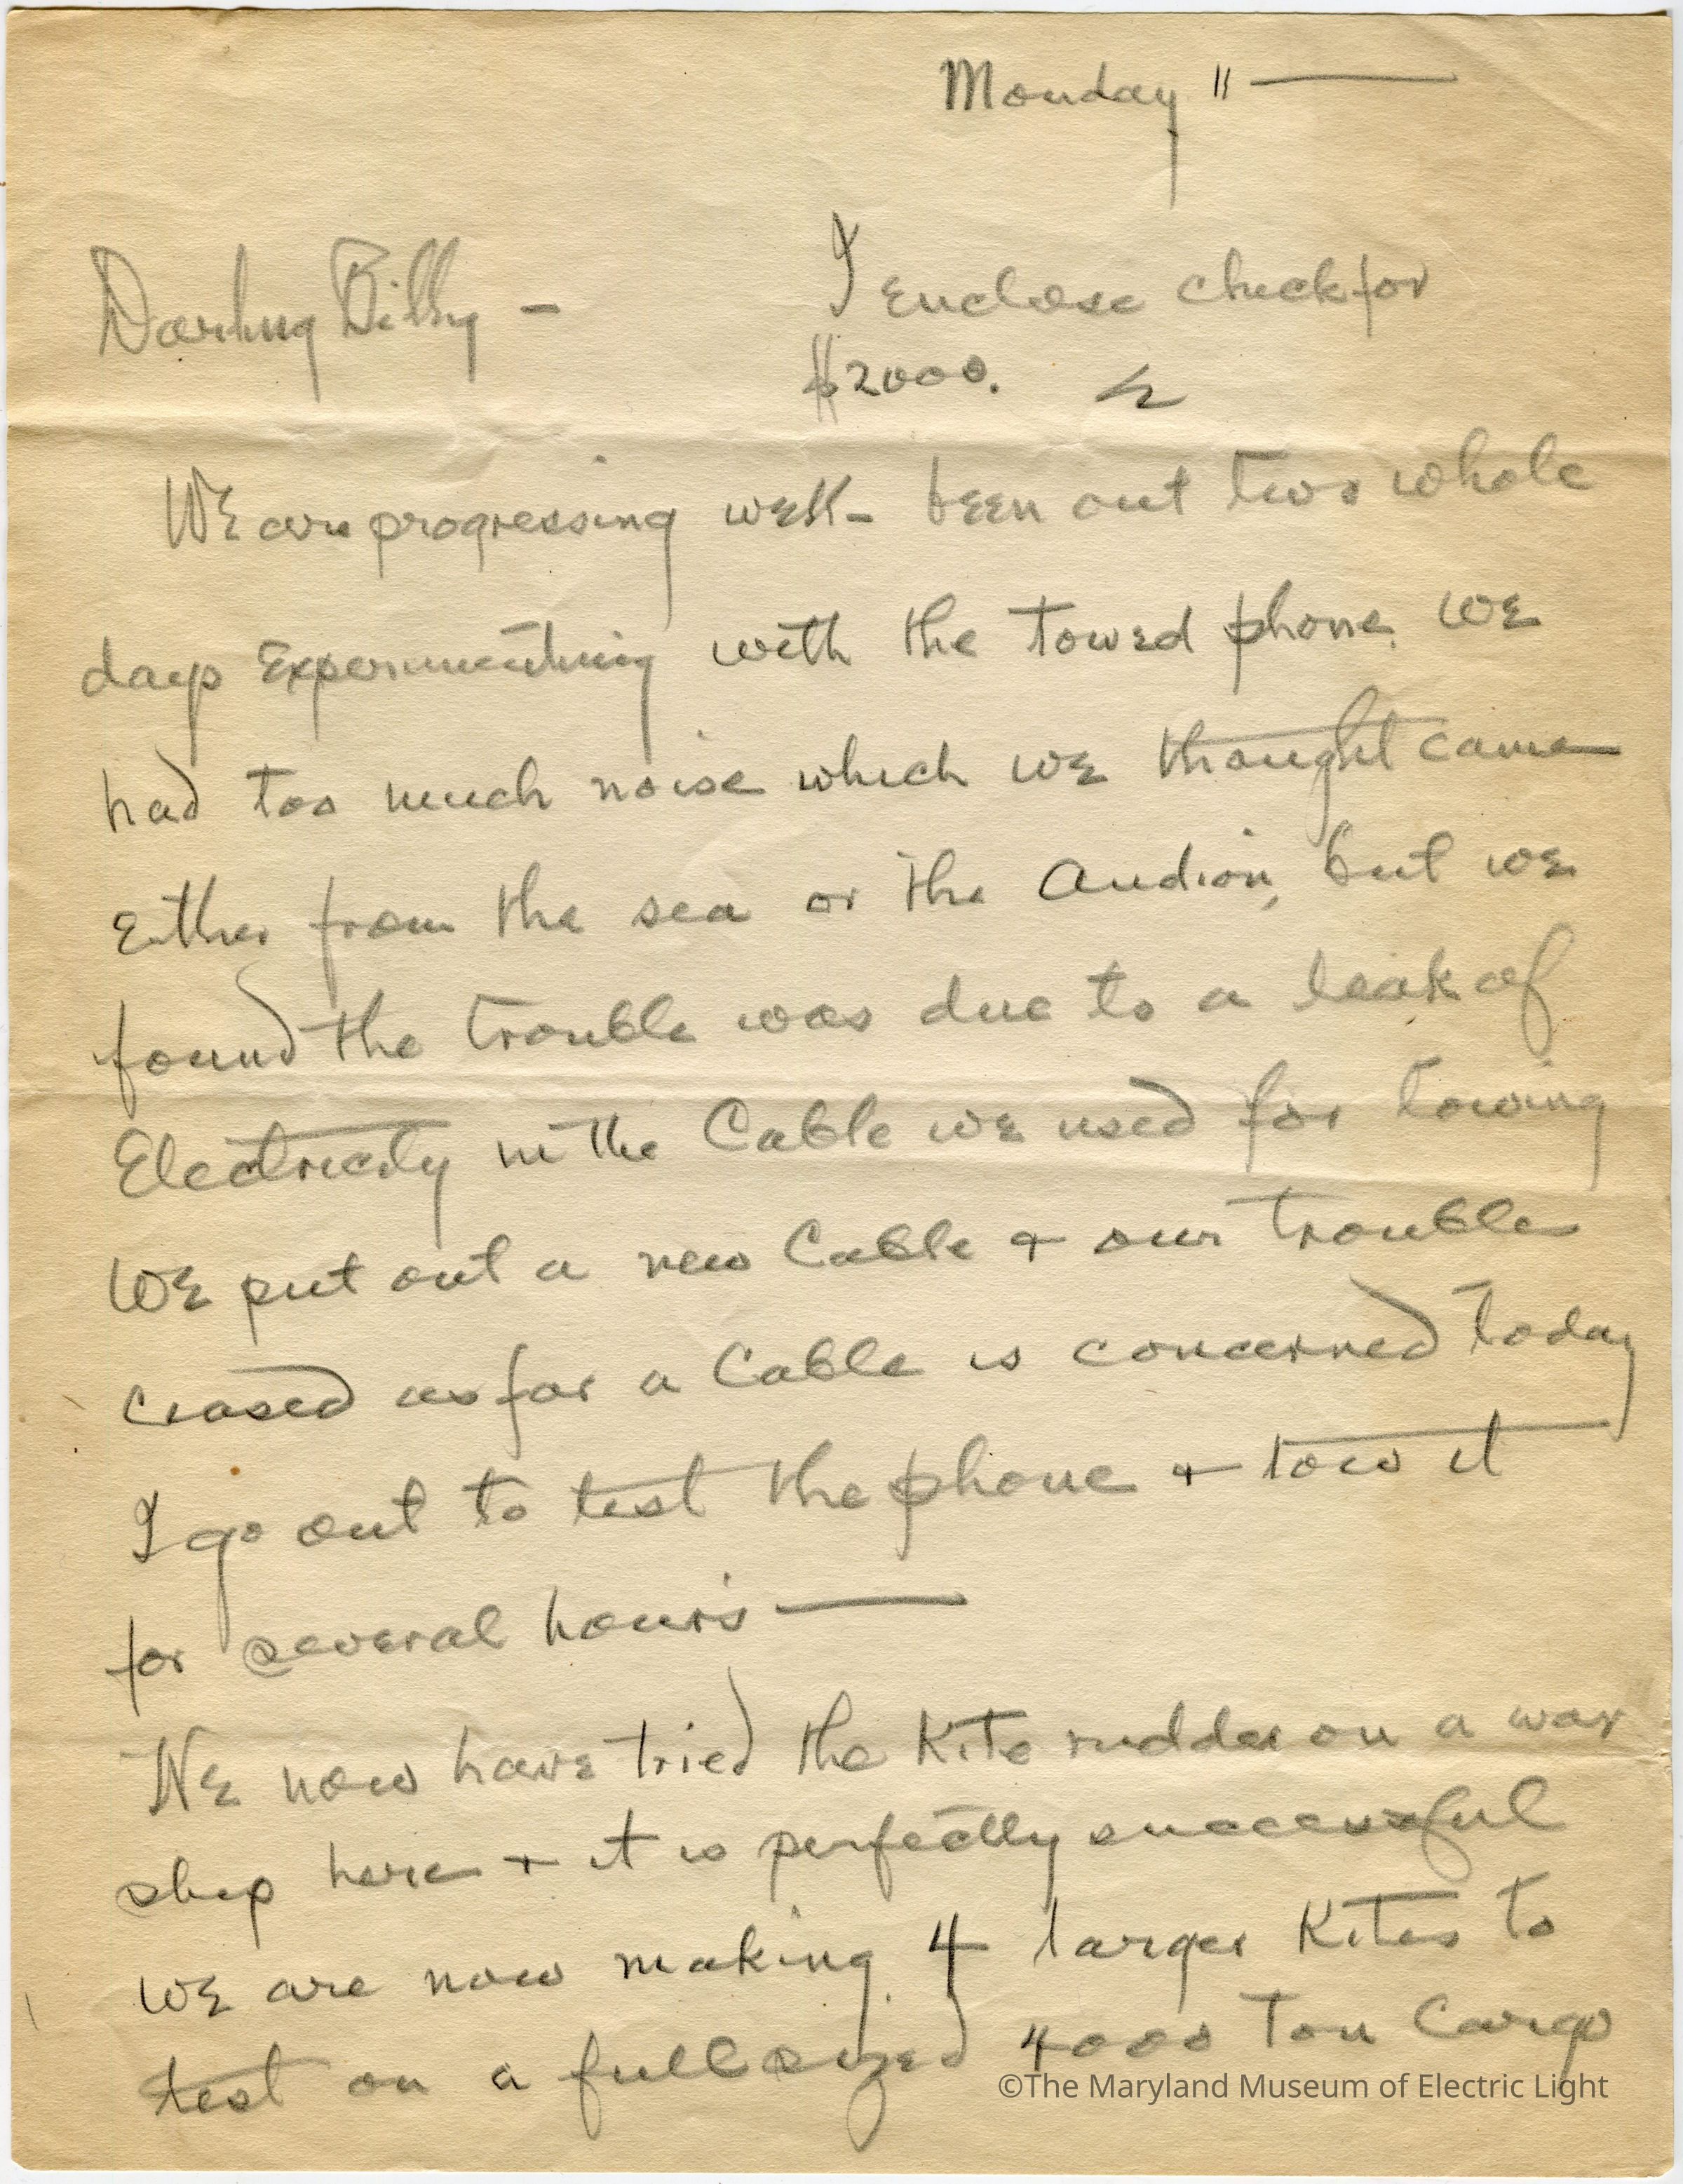 Monday 11 —
Darling Billy – I Enclose check for
$2000.
WE are progressing well – been out two whole
days Experimenting with the towed phone. WE
had too much noise which we thought came
Either from the sea or the Audion, but we
found the trouble was due to a leak of
Electricity in the Cable we used for towing
WE put out a new Cable + our trouble
ceased as far a Cable is concerned today
I go out to test the phone + tow it
for several hours —
WE now have tried the Kite rudder on a war
ship here + it is perfectly successful
WE are now making 4 larger Kites to
test on a full sized 4000 Ton Cargo
©The Maryland Museum of Electric Light